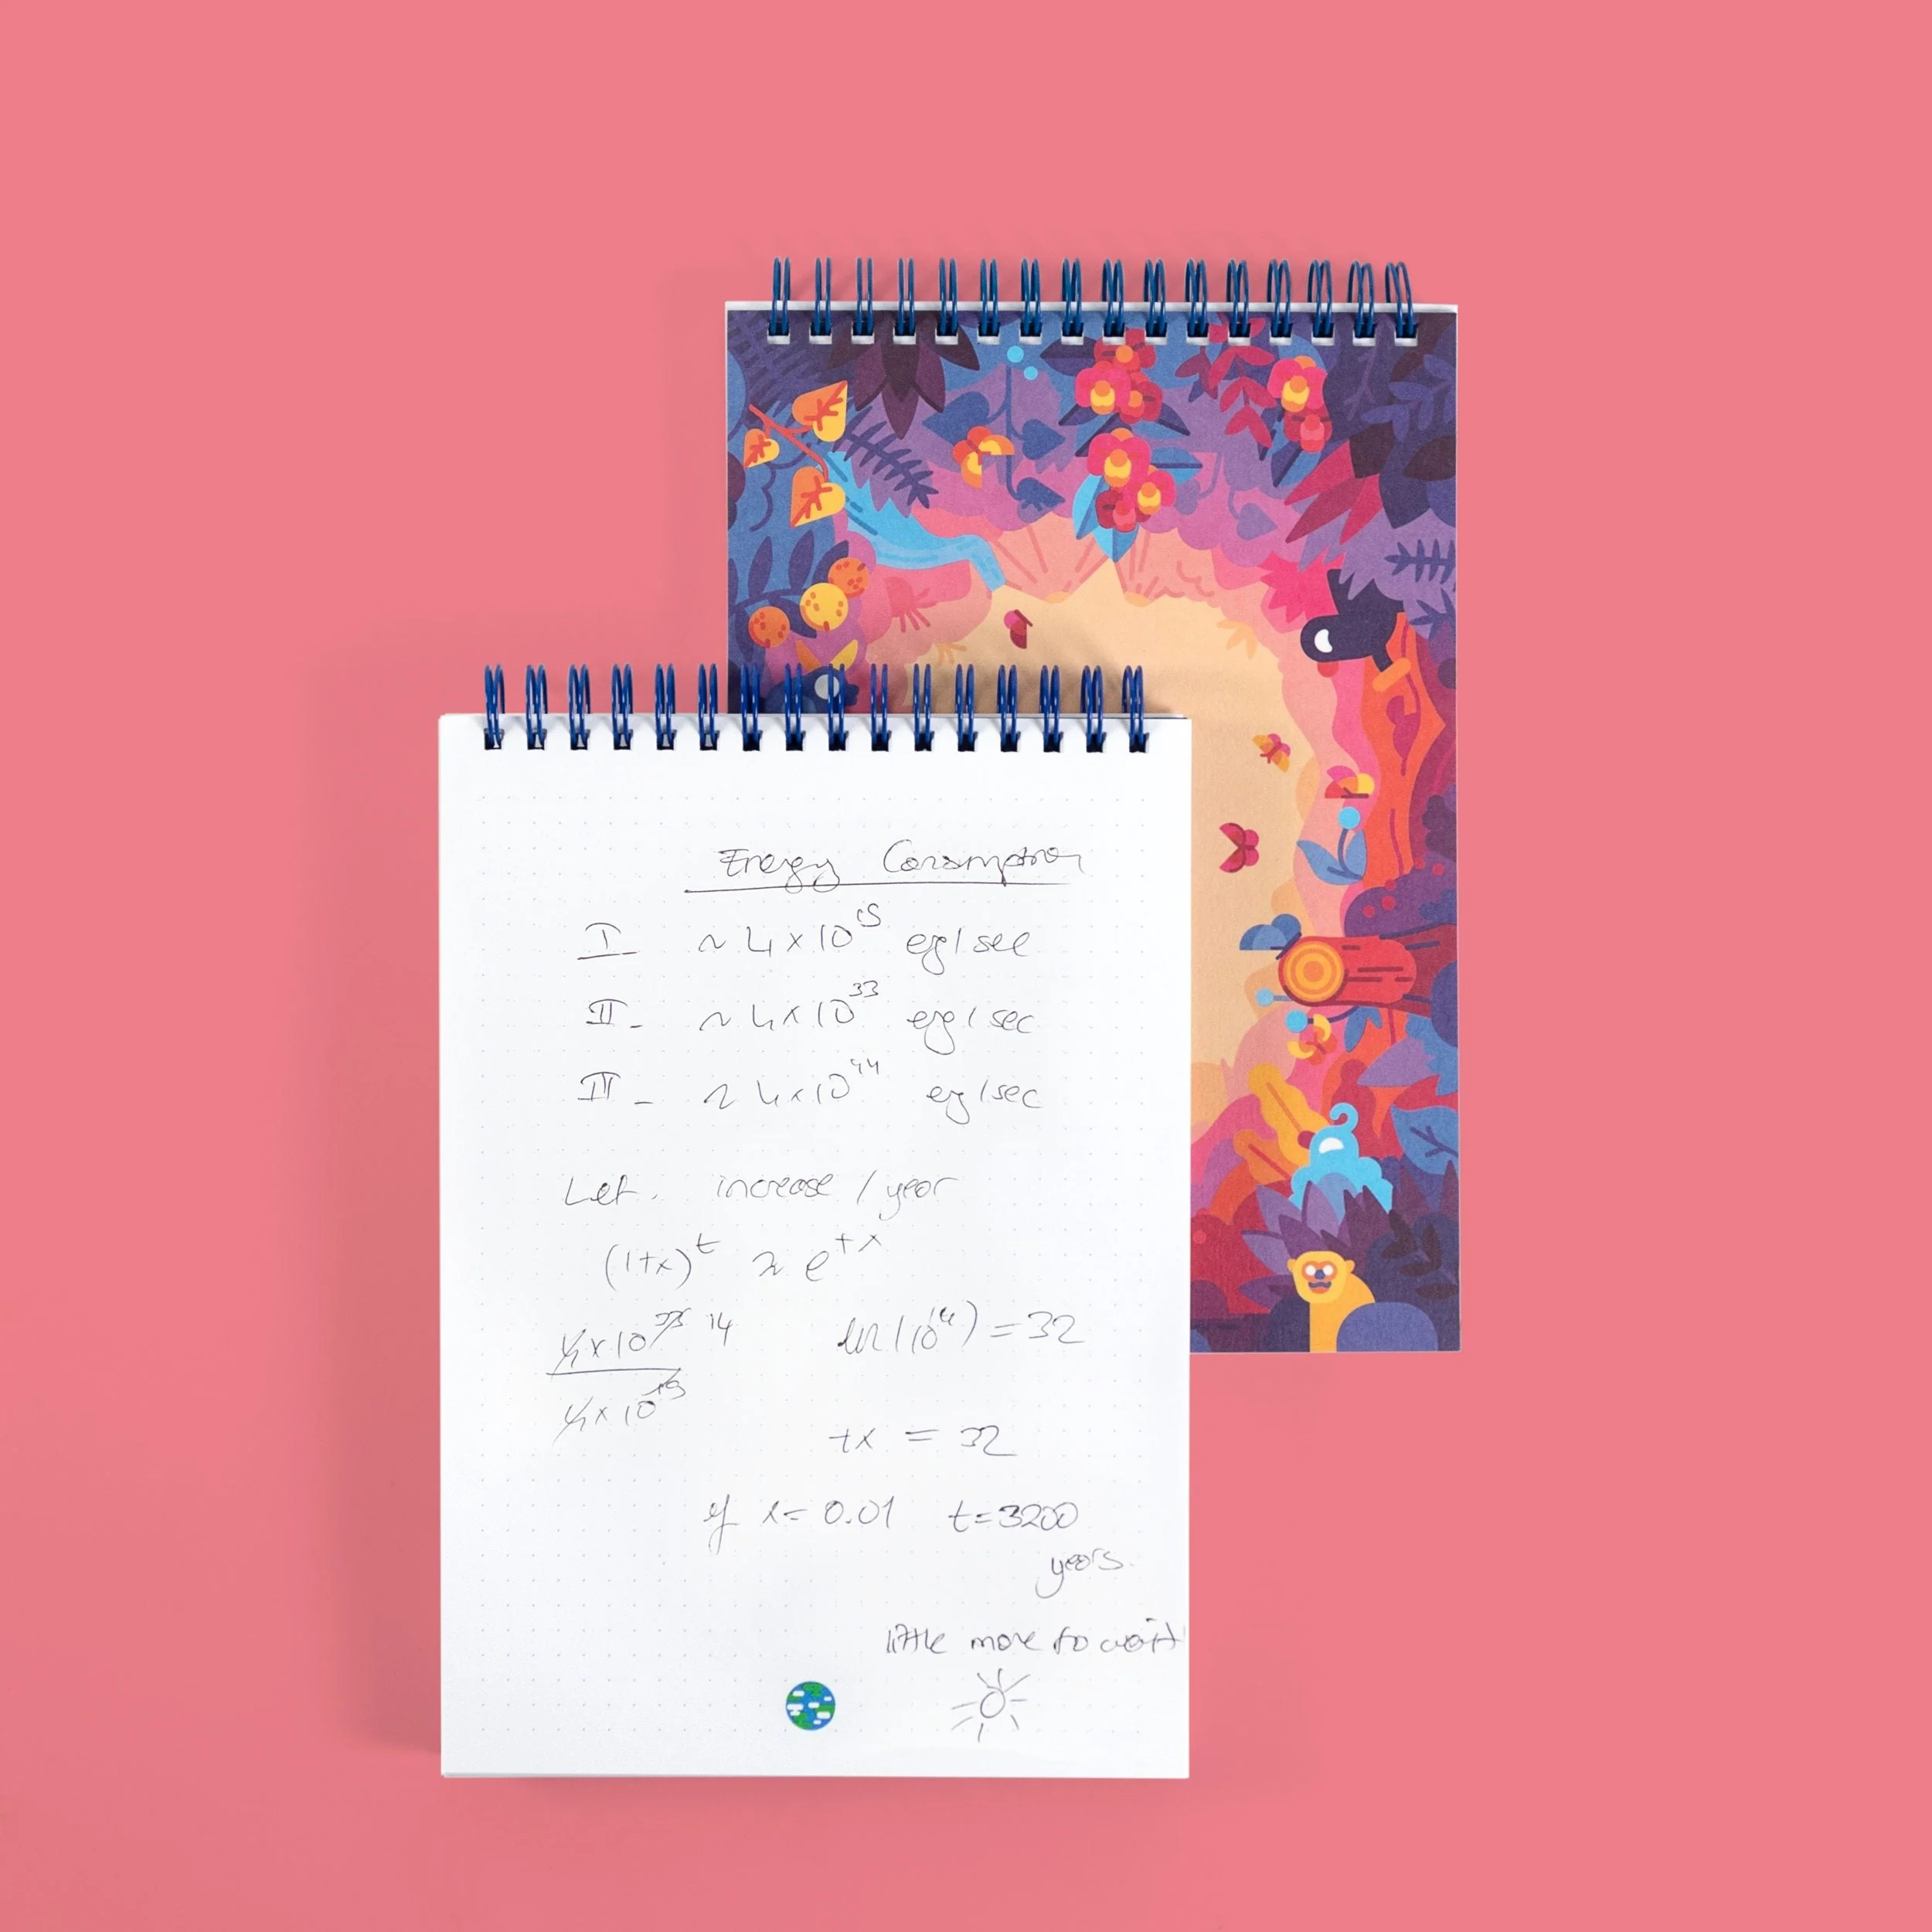 Energy Consumption
I - ~ 4 x 10^19 erg/sec
II - ~ 4 x 10^33 erg/sec
III - ~ 4 x 10^44 erg/sec
Let. increase / year
(1+x)^t ≈ e^tx
4 x 10^33 14 ln(10^14) = 32
4 x 10^19
tx = 32
if x = 0.01 t = 3200
years.
little more to wait